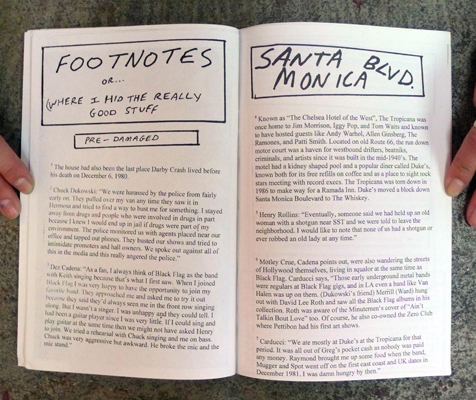 FOOTNOTES
OR...
(WHERE I HID THE REALLY
GOOD STUFF
PRE-DAMAGED
1 The house had also been the last place Darby Crash lived before
his death on December 6, 1980.
2 Chuck Dukowski: "We were harassed by the police from fairly
early on. They pulled over my van any time they saw it in
Hermosa and tried to find a way to bust me for something. I stayed
away from drugs and people who were involved in drugs in part
because I knew I would end up in jail if drugs were part of my
environment. The police moved us with agents placed near our
office and tapped our phones. They busted our shows and tried to
intimidate promoters and hall owners. We spoke out against all of
this in the media and this really angered the police."
3 Dez Cadena: "As a fan, I always think of Black Flag as the band
with Keith singing because that's what I first saw. When I joined
Black Flag I was very happy to have the opportunity to join my
favorite band. They approached me and asked me to try it out
because they said they'd always seen me in the front row singing
along. But I wasn't a singer. I was unhappy and they could tell. I
had been a guitar player since I was very little. If I could sing and
play guitar at the same time then we might not have asked Henry
to join. We tried a rehearsal with Chuck singing and me on bass.
Chuck was very aggressive but awkward. He broke the mic and the
mic stand."
SANTA BLVD.
MONICA
4 Known as "The Chelsea Hotel of the West", The Tropicana was
once home to Jim Morrison, Iggy Pop, and Tom Waits and known
to have hosted guests like Andy Warhol, Allen Ginsburg, The
Ramones, and Patti Smith. Located on old Route 66, the run down
motor court was a haven for westbound drifters, beatniks,
criminals, and artists since it was built in the mid-1940's. The
motel had a kidney shaped pool and a popular diner called Duke's,
known both for its free refills on coffee and as a place to sight rock
stars meeting with record execs. The Tropicana was torn down in
1986 to make way for a Ramada Inn. Duke's moved a block down
Santa Monica Boulevard to The Whiskey.
5 Henry Rollins: "Eventually, someone said we had held up an old
woman with a shotgun near SST and we were told to leave the
neighborhood. I would like to note that none of us had a shotgun or
ever robbed an old lady at any time."
6 Motley Crue, Cadena points out, were also wandering the streets
of Hollywood themselves, living in squalor at the same time as
Black Flag. Carducci says, "Those early underground metal bands
were regulars at Black Flag gigs, and in LA even a band like Van
Halen was up on them. (Dukowski's friend) Merrill (Ward) hung
out with David Lee Roth and saw all the Black Flag albums in his
collection. Roth was aware of the Minutemen's cover of "Ain't
Talkin Bout Love" too. Of course, he also co-owned the Zero Club
where Pettibon had his first art shows.
7 Carducci: "We are mostly at Duke's at the Tropicana for that
period. It was all out of Greg's pocket cash as nobody was paid
any money. Raymond brought me up some food when the band,
Mugger and Spot went off on the first east coast and UK dates in
December 1981. I was damn hungry by then."